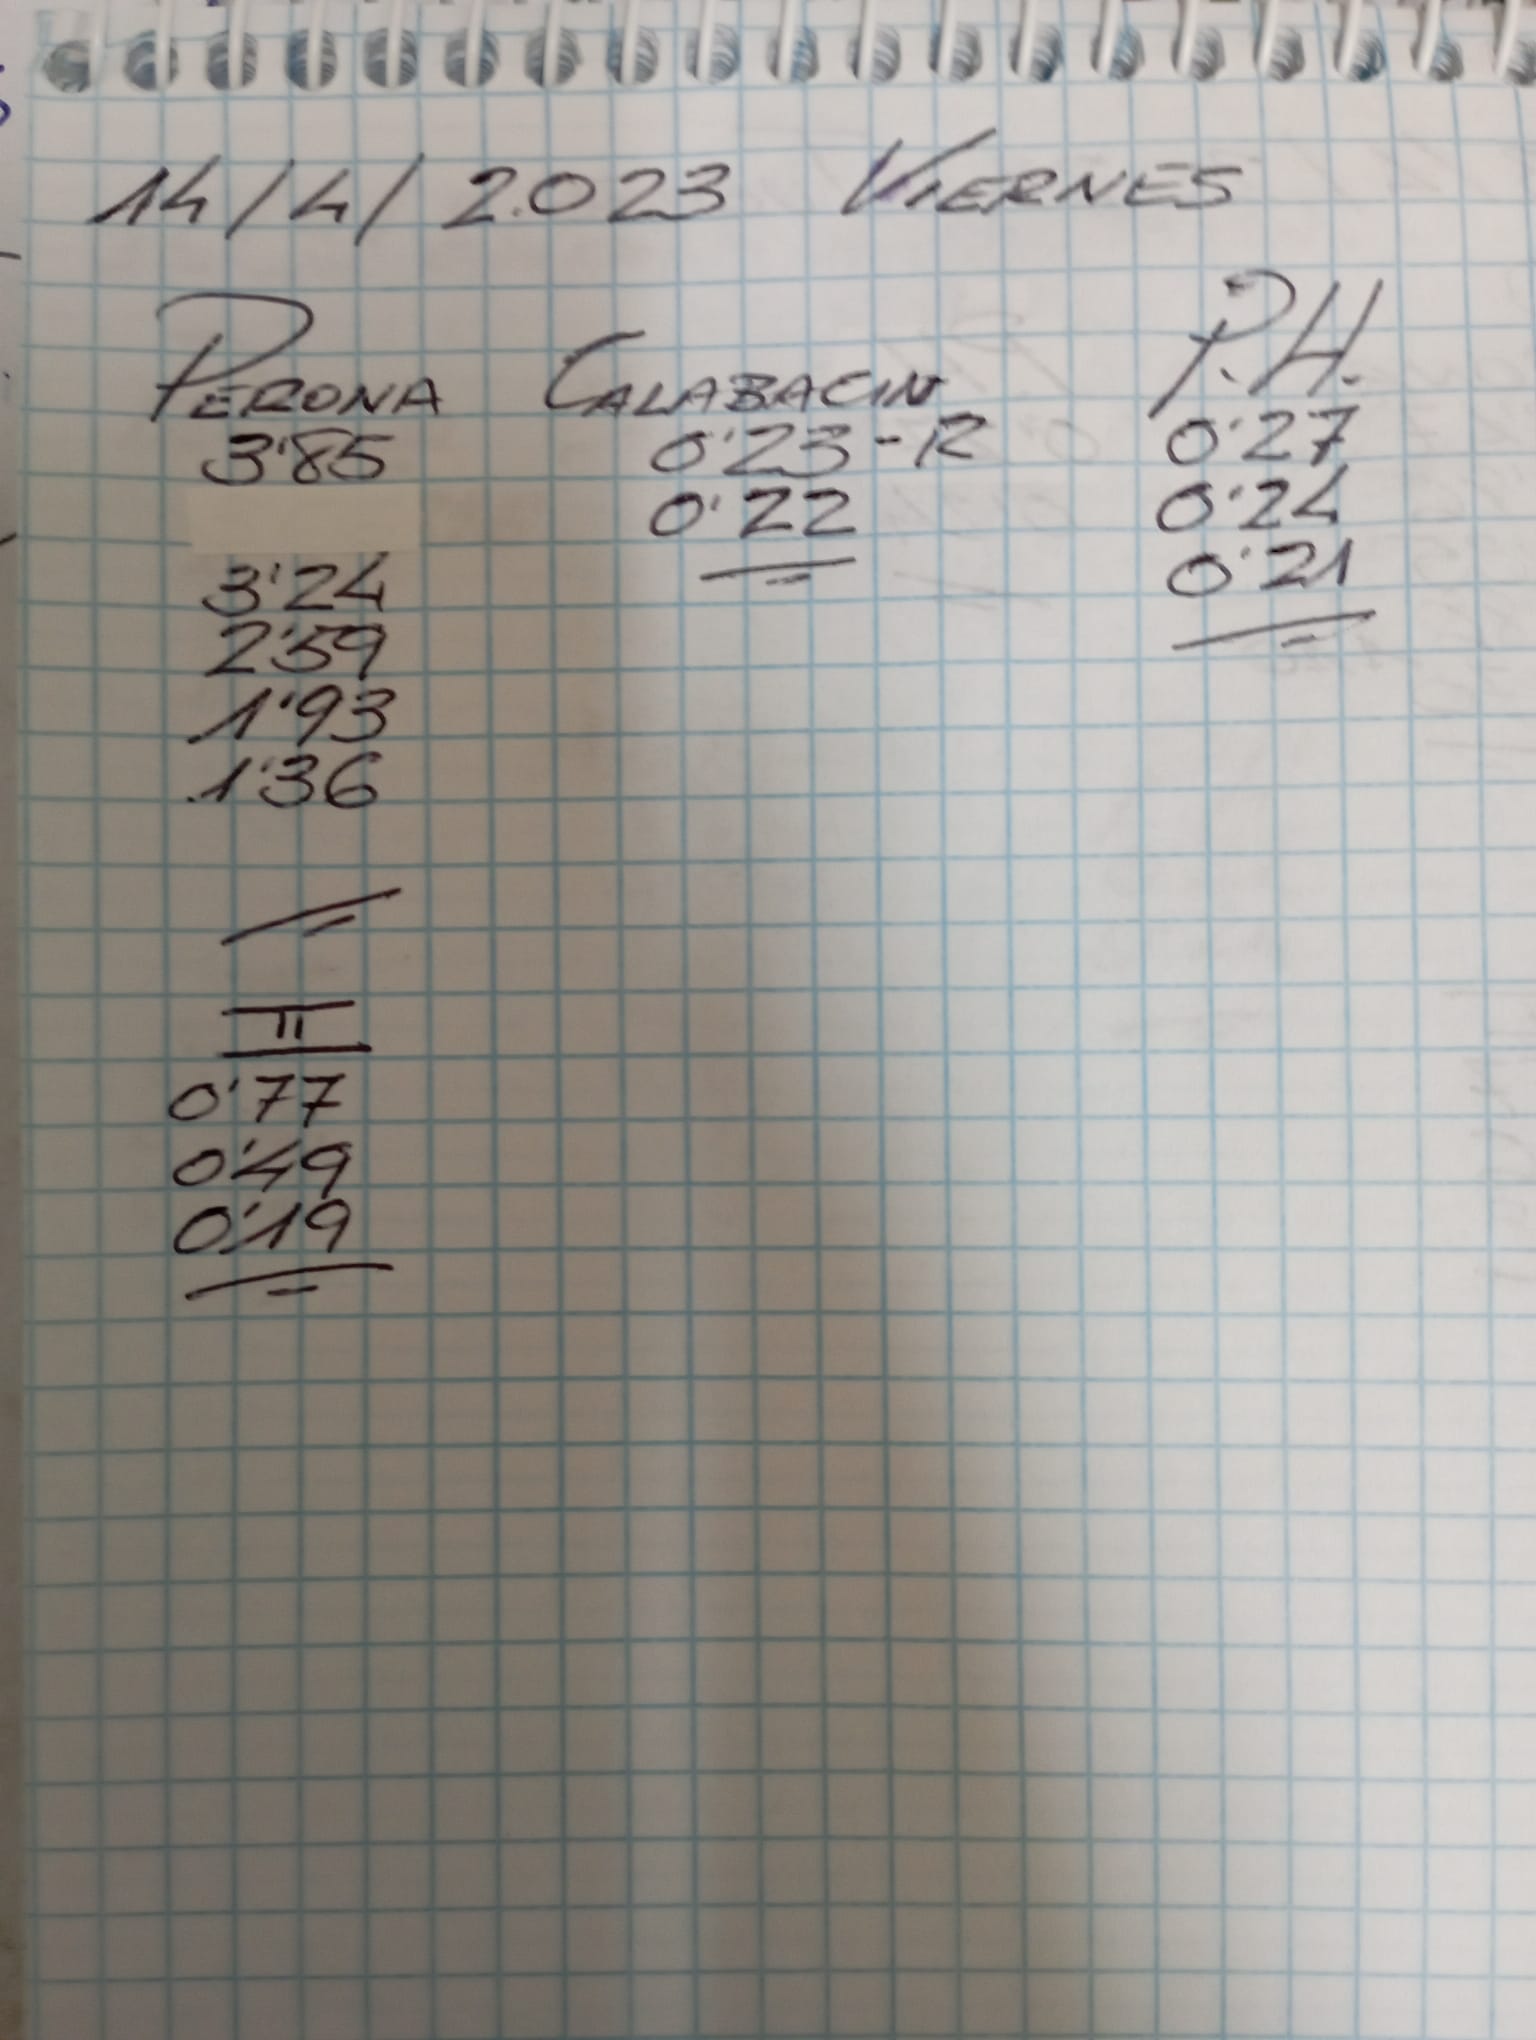 14/4/2.023 VIERNES
PERONA CALABACIN P.H.
3'85 0'23-R 0'27
0'22 0'24
3'24 0'21
2'59
1'93
1'36
II
0'77
0'49
0'19